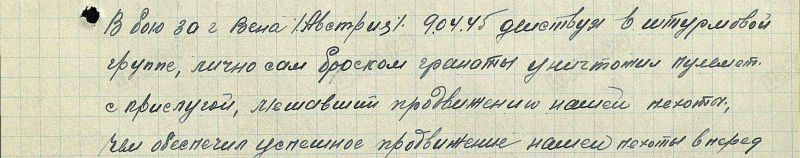 В бою за г Вена /Австрия/. 9.04.45 действуя в штурмовой
группе, лично сам броском гранаты уничтожил пулемет.
с прислугой, мешавший продвижению нашей пехоты,
чем обеспечил успешное продвижение нашей пехоты вперед